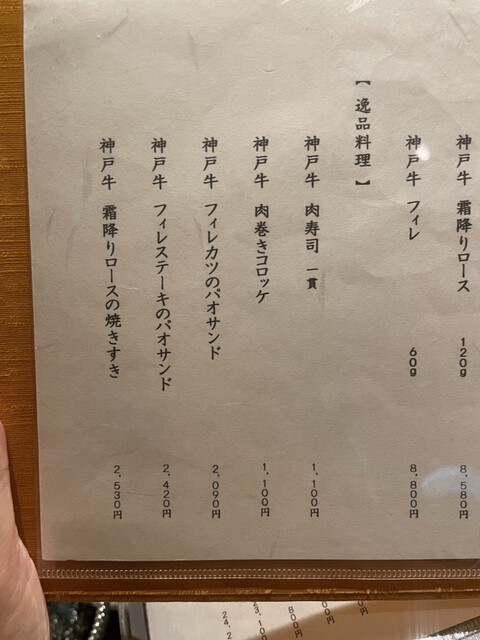 神戸牛 霜降りロース 120g 8,580円
神戸牛 フィレ 60g 8,800円
【逸品料理】
神戸牛 肉寿司 一貫 1,100円
神戸牛 肉巻きコロッケ 1,100円
神戸牛 フィレカツのパオサンド 2,090円
神戸牛 フィレステーキのパオサンド 2,420円
神戸牛 霜降りロースの焼きすき 2,530円